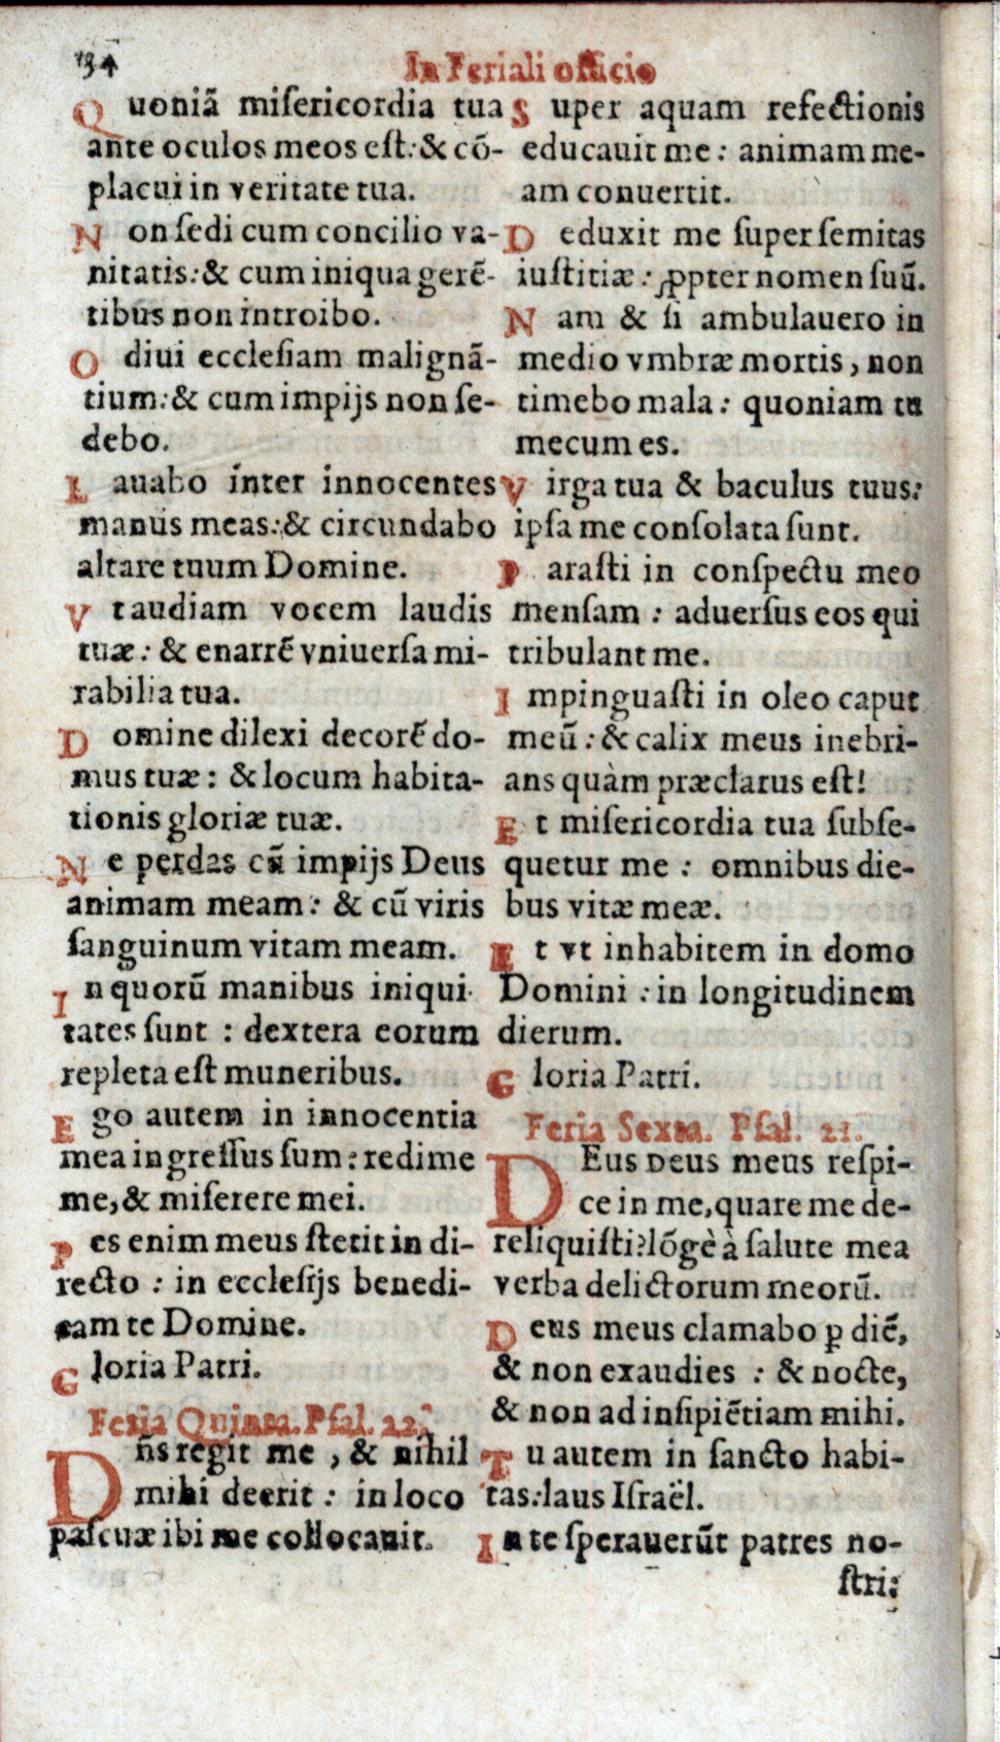 134
In Feriali officio
Quoniã miſericordia tua
ante oculos meos eſt: & cõ-
placui in veritate tua.
Non ſedi cum concilio va-
nitatis: & cum iniqua gerẽ-
tibus non introibo.
Odiui eccleſiam malignã-
tium: & cum impijs non ſe-
debo.
Lauabo inter innocentes
manus meas: & circundabo
altare tuum Domine.
Vt audiam vocem laudis
tuæ: & enarrẽ vniuerſa mi-
rabilia tua.
Domine dilexi decorẽ do-
mus tuæ: & locum habita-
tionis gloriæ tuæ.
Ne perdas cũ impijs Deus
animam meam: & cũ viris
ſanguinum vitam meam.
In quorũ manibus iniqui-
tates ſunt : dextera eorum
repleta eſt muneribus.
Ego autem in innocentia
mea ingreſſus ſum: redime
me, & miſerere mei.
Pes enim meus ſtetit in di-
recto : in eccleſijs benedi-
cam te Domine.
Gloria Patri.
Feria Quinta. Pſal. 22.
Dñs regit me , & nihil
mihi deerit : in loco
paſcuæ ibi me collocauit.
Super aquam refectionis
educauit me : animam me-
am conuertit.
Deduxit me ſuper ſemitas
iuſtitiæ : ꝓpter nomen ſuũ.
Nam & ſi ambulauero in
medio vmbræ mortis, non
timebo mala : quoniam tu
mecum es.
Virga tua & baculus tuus:
ipſa me conſolata ſunt.
Paraſti in conſpectu meo
menſam : aduerſus eos qui
tribulant me.
Impinguaſti in oleo caput
meũ : & calix meus inebri-
ans quàm præclarus eſt!
Et miſericordia tua ſubſe-
quetur me : omnibus die-
bus vitæ meæ.
Et vt inhabitem in domo
Domini : in longitudinem
dierum.
Gloria Patri.
Feria Sexta. Pſal. 21.
DEus Deus meus reſpi-
ce in me, quare me de-
reliquiſti? lõgè à ſalute mea
verba delictorum meorũ.
Deus meus clamabo ꝑ diẽ,
& non exaudies : & nocte,
& non ad inſipiẽtiam mihi.
Tu autem in ſancto habi-
tas: laus Iſraël.
In te ſperauerũt patres no-
ſtri: